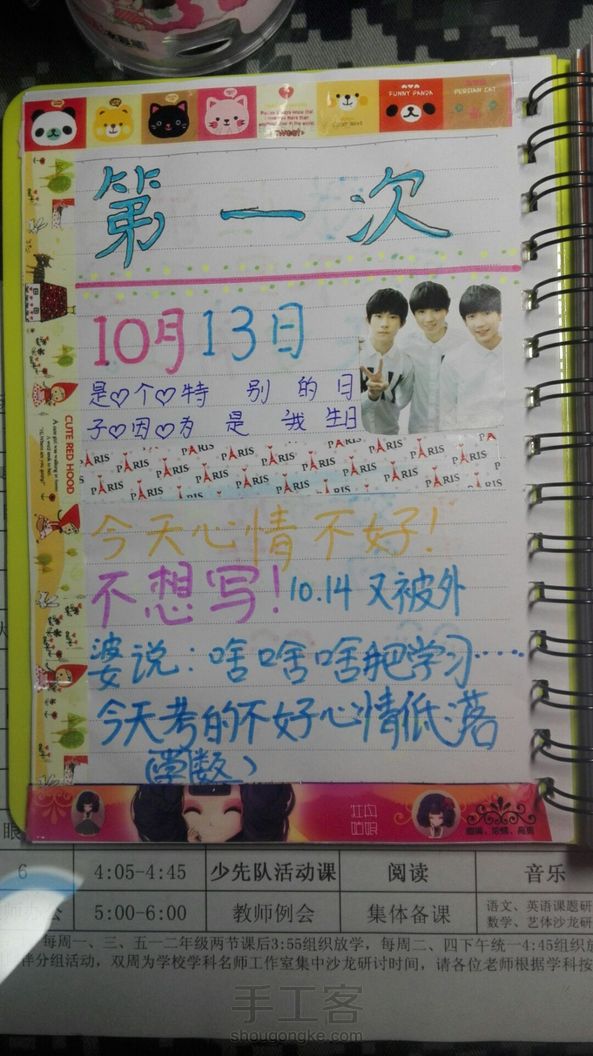 FUNNY PANDA
PERSIAN CAT
Sweet
第一次
10月13日
是♡个♡特别的日
子♡因♡为是我生日
PARIS PARIS PARIS PARIS PARIS
CUTE RED HOOD
今天心情不好!
不想写!10.14又被外
婆说:啥啥啥把学习……
今天考的不好心情低落
(学数)
6 4:05-4:45 少先队活动课 阅读 音乐
5:00-6:00 教师例会 集体备课 语文、英语课题研
数学、艺体沙龙研
每周一、三、五一二年级两节课后3:55组织放学,每周二、四下午统一4:45组织放
分组活动,双周为学校学科名师工作室集中沙龙研讨时间,请各位老师根据学科按
手工客
shougongke.com